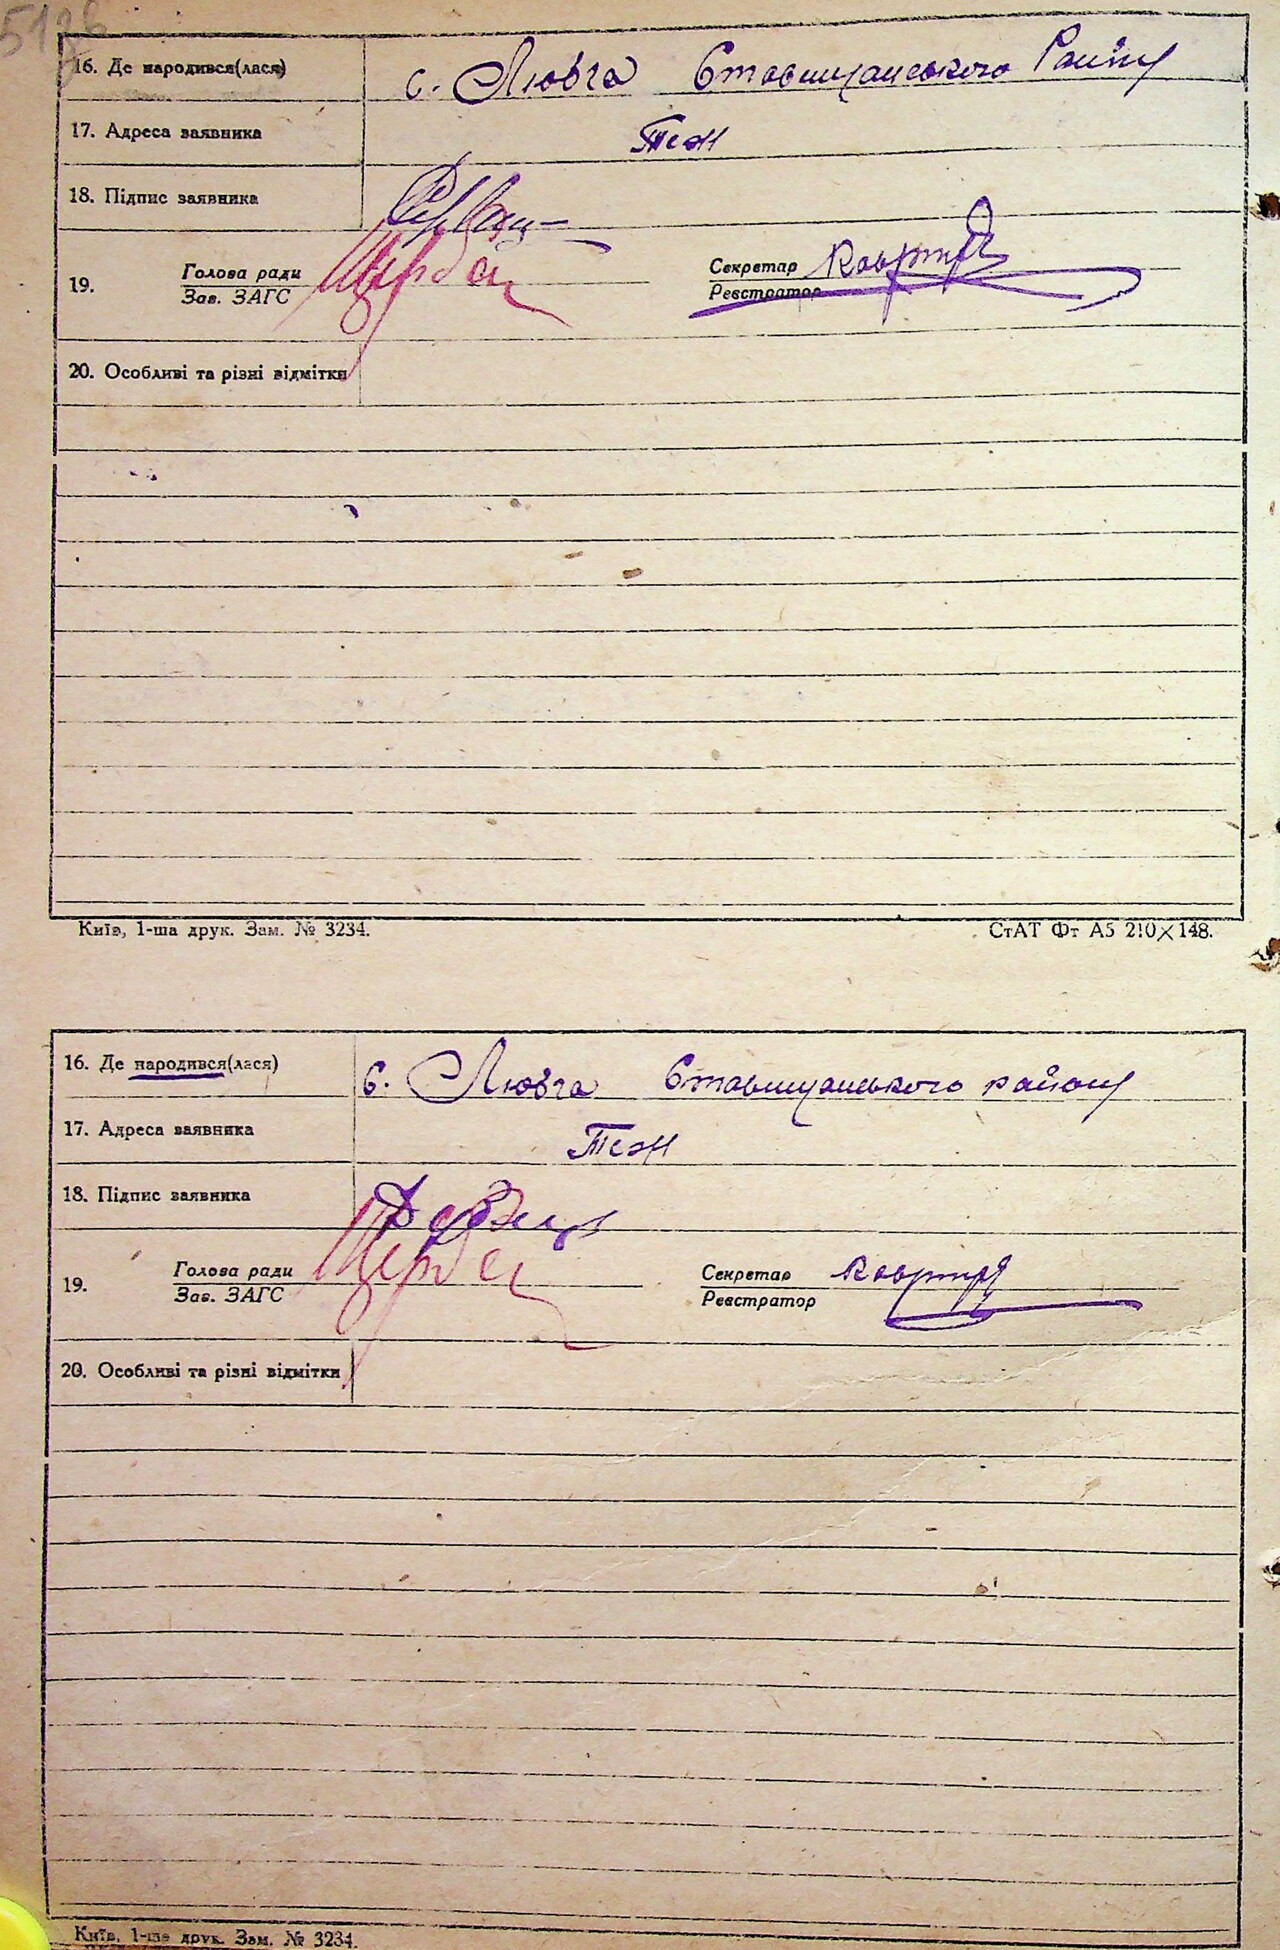 5136
16. Де народився(лася) с. Любча Ставищанського Району
17. Адреса заявника Теж
18. Підпис заявника
Голова ради Щербан Секретар
19.
Зав. ЗАГС Реєстратор
20. Особливі та різні відмітки
Київ, 1-ша друк. Зам. № 3234. СтАТ Фт А5 210×148.
16. Де народився(лася) с. Любча Ставищанського району
17. Адреса заявника Теж
18. Підпис заявника
Голова ради Щербан Секретар
19.
Зав. ЗАГС Реєстратор
20. Особливі та різні відмітки
Київ, 1-ша друк. Зам. № 3234.